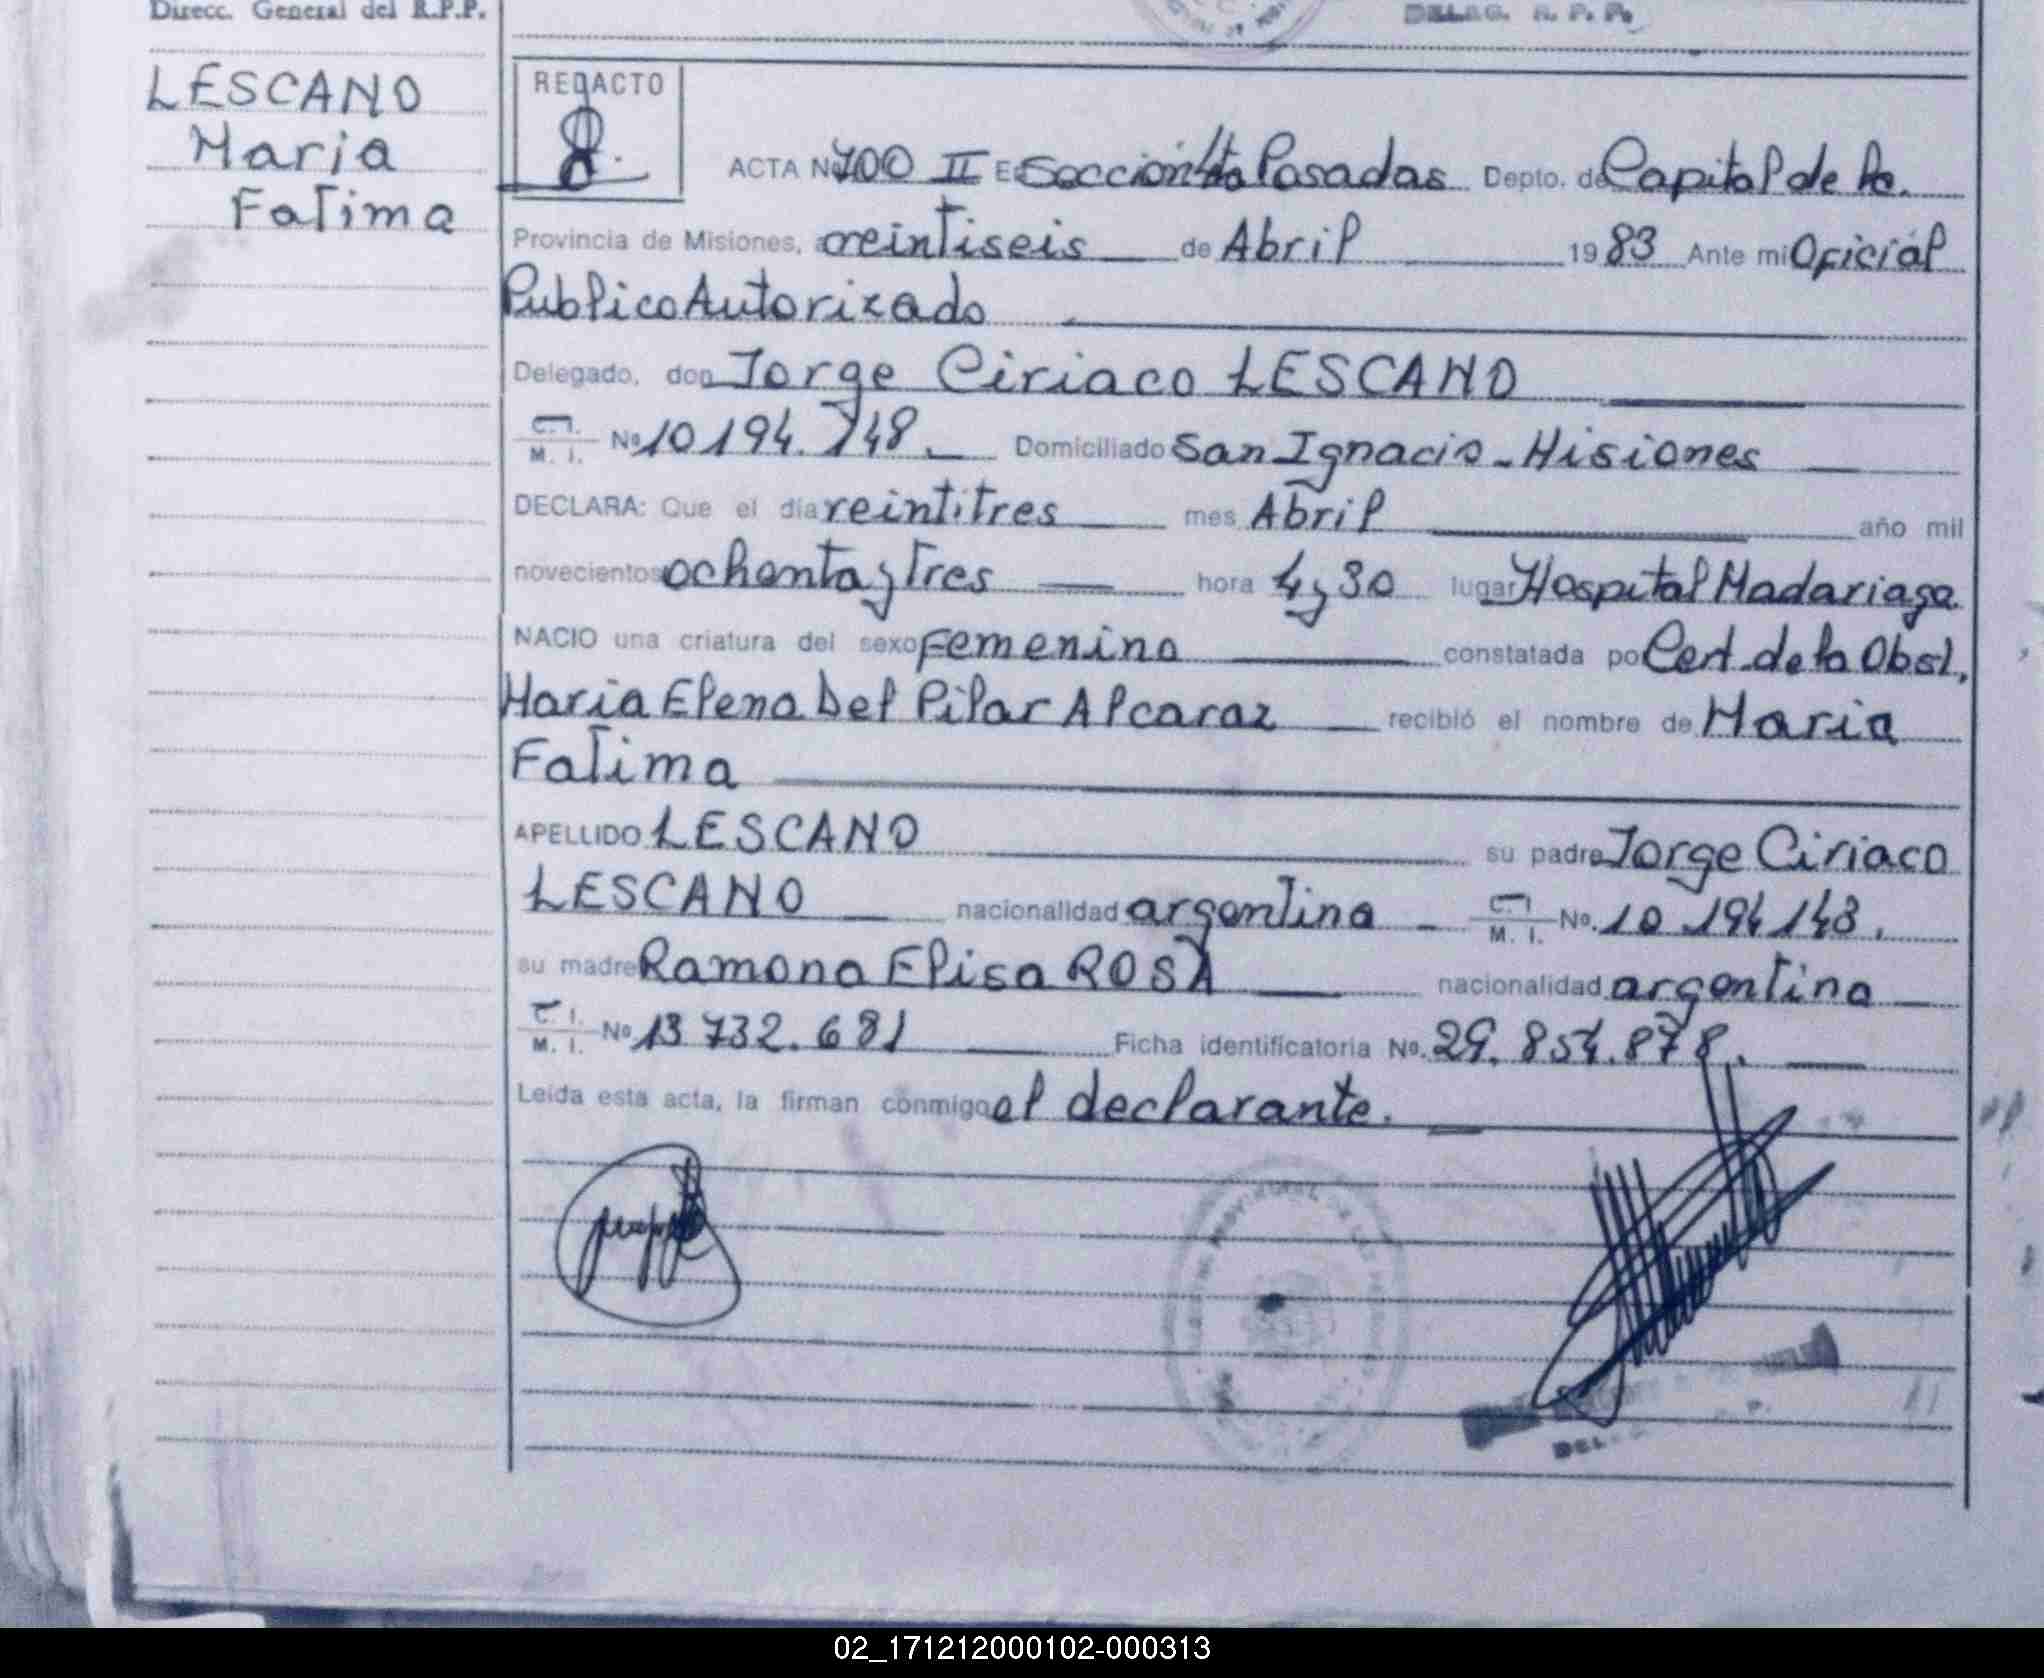 Direcc. General del R.P.P.
DELEG. R. P. P.
LESCANO
Maria
Fatima
REDACTO
ACTA Nº 700 II E Sección 4ta Posadas Depto. de Capital de la
Provincia de Misiones, a veintiseis de Abril 1983 Ante mi Oficial
Publico Autorizado
Delegado, don Jorge Ciriaco LESCANO
C. I. M. I. Nº 10194.148 Domiciliado San Ignacio - Misiones
DECLARA: Que el día veintitres mes Abril año mil
novecientos ochenta y tres hora 4 y 30 lugar Hospital Madariaga
NACIO una criatura del sexo Femenino constatada po Cert. de la Obst,
Maria Elena Del Pilar Alcaraz recibió el nombre de Maria
Fatima
APELLIDO LESCANO su padre Jorge Ciriaco
LESCANO nacionalidad argentina C. I. M. I. Nº. 10.194148.
su madre Ramona Elisa ROSA nacionalidad argentina
C. I. M. I. Nº 13732.681 Ficha identificatoria Nº. 29.854.878.
Leída esta acta, la firman conmigo el declarante.
DEL
02_171212000102-000313